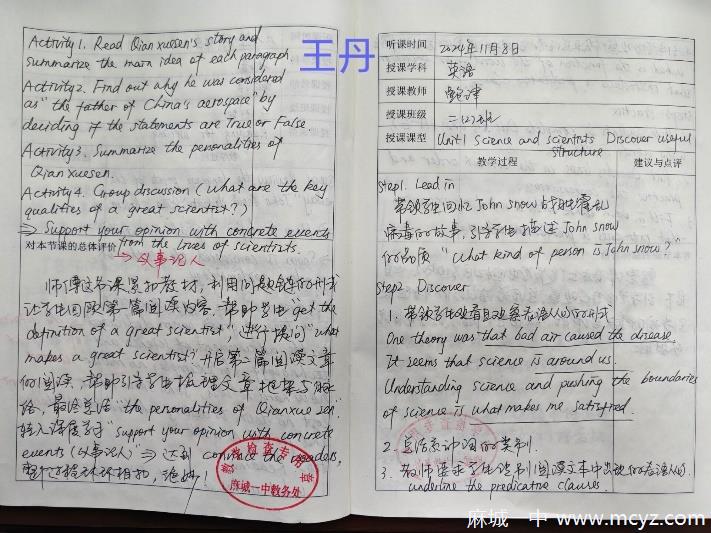 Activity 1. Read Qian xuesen's story and
summarize the main idea of each paragraph.
Activity 2. Find out why he was considered
as "the father of China's aerospace" by
deciding if the statements are True or False
Activity 3. Summarize the personalities of
Qian Xuesen.
Activity 4. Group discussion (what are the key
qualities of a great scientist?)
⇒ Support your opinion with concrete events
from the lives of scientists.
对本节课的总体评价
→ 以事论人
师傅这节课紧扣教材,利用问题链的形式
让学生回顾第一篇阅读内容,帮助学生"get the
definition of a great scientist",进行提问"what
makes a great scientist?"开启第二篇阅读文章
的阅读,帮助引导学生梳理文章框架与脉
络,最终总结"the personalities of Qianxue sen"
转入深度学习"support your opinion with concrete
events (以事论人) ⇒ 达到 convince the readers,
整个过程环环相扣,绝妙!
教学检查专用章
麻城一中教务处
王丹
听课时间 2024年11月8日
授课学科 英语
授课教师
授课班级
授课课型 Unit1 Science and scientists Discover useful
structure
教学过程 建议与点评
Step1. Lead in
带领学生回忆John Snow战胜霍乱
病毒的故事,引导学生描述John Snow
的品质 "What kind of person is John Snow?"
Step2. Discover
1. 带领学生观察表语从句的形式
One theory was that bad air caused the disease.
It seems that science is around us.
Understanding science and pushing the boundaries
of science is what makes me satisfied.
2. 总结系动词的类别.
3. 教师要求学生找到阅读文本中出现的表语从句.
underline the predicative clauses.
麻城一中 www.mcyz.com